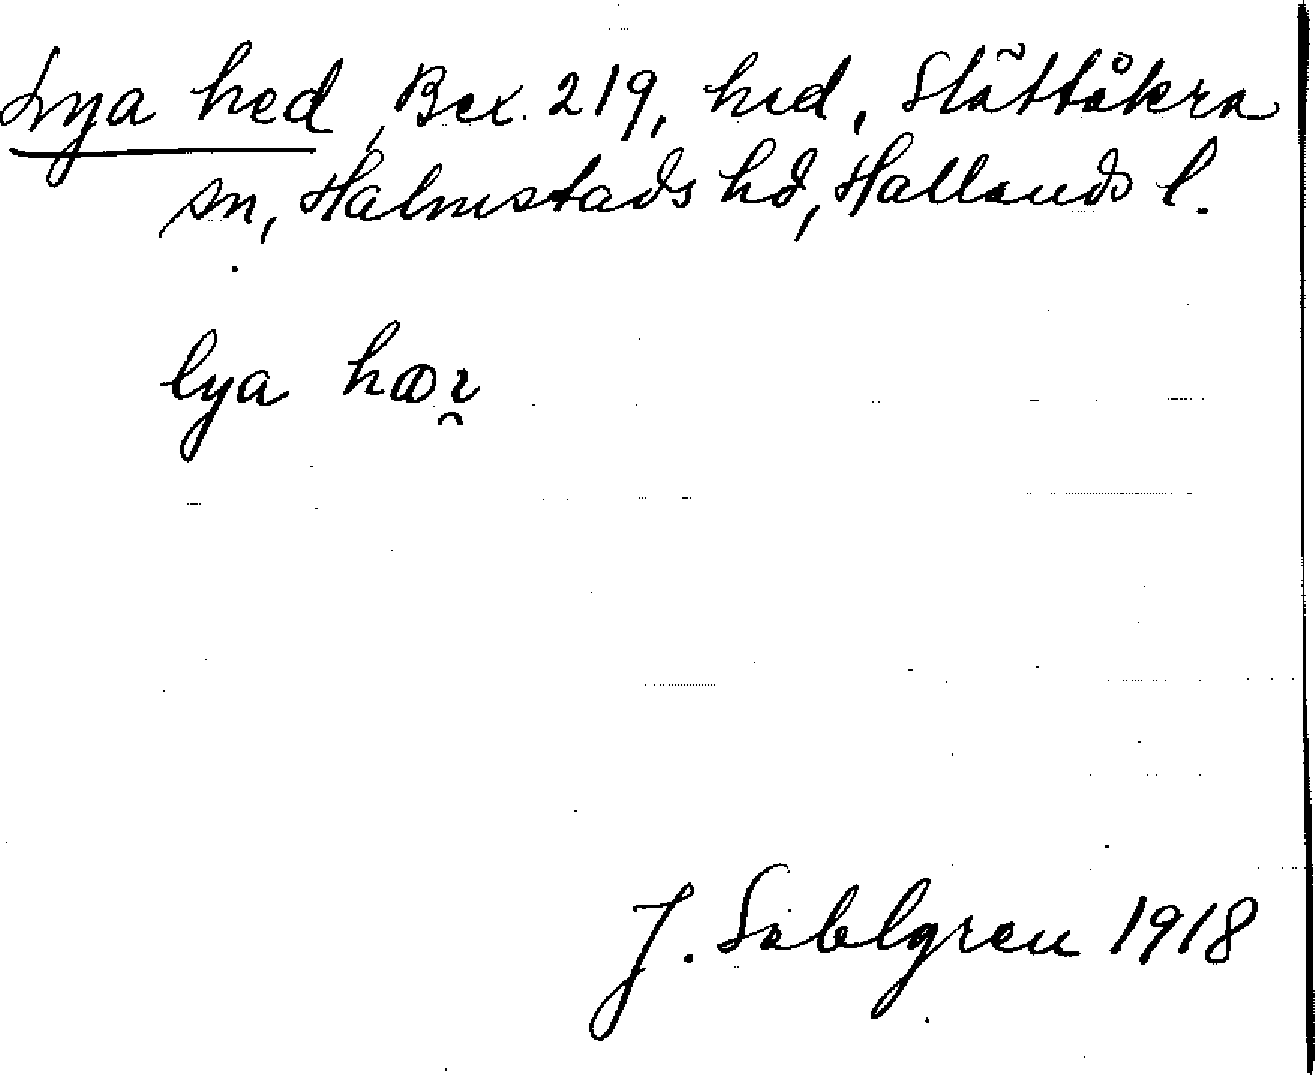 Lya hed, Bex. 219, hed, Slättåkra
sn, Halmstads hd, Hallands l.
lya hæɪ̯
J. Sahlgren 1918